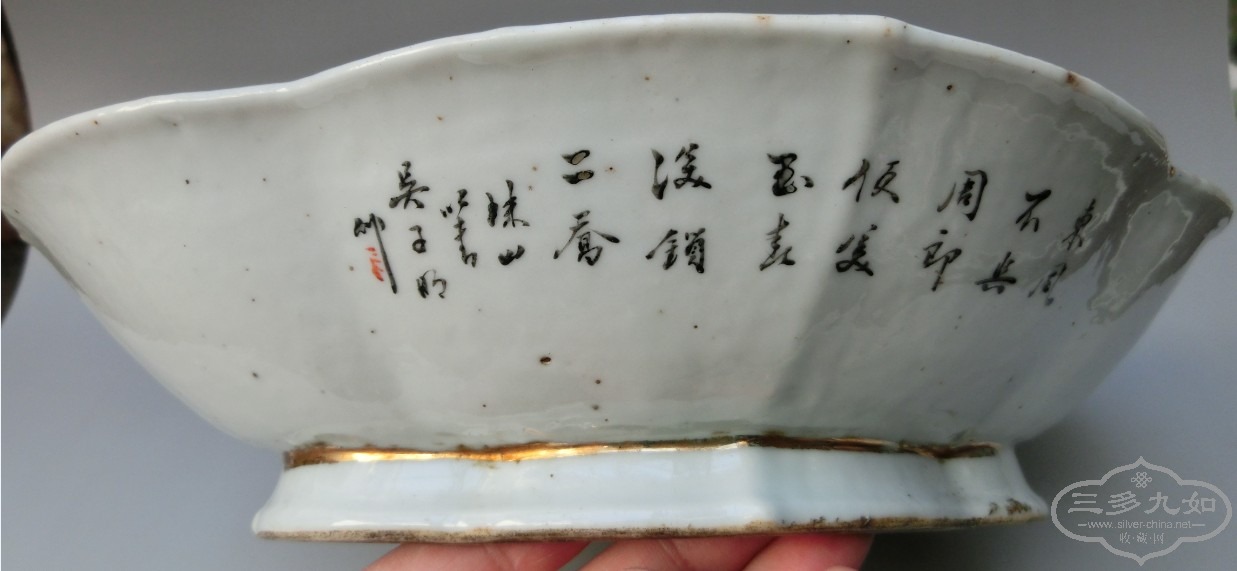 東風
不與
周郎
便美
玉春
深鎖
二喬
珠山
書
吳子明
作
三多九如
www.silver-china.net
收·藏·网